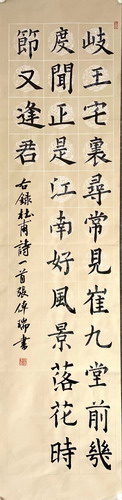 岐王宅裏尋常見崔九堂前幾
度聞正是江南好風景落花時
節又逢君
右錄杜甫詩一首張倬瑞書